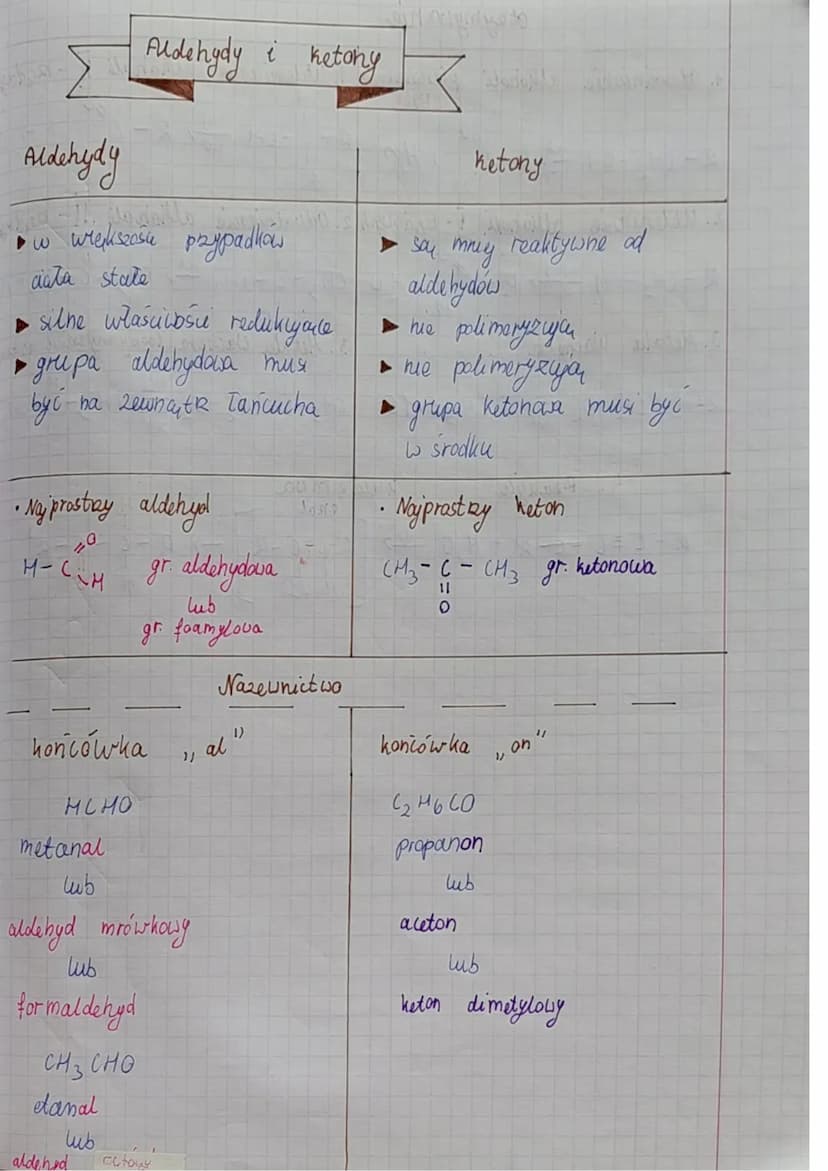 Aldehydy i ketony
Aldehydy
▸ w większości przypadków
ciała stałe
▸ silne właściwości redukujące
▸ grupa aldehydowa musi
być na zewnątrz łańcucha
ketony
▸ są mniej reaktywne od
aldehydów
▸ nie polimeryzują
▸ nie polimeryzują
▸ grupa ketonowa musi być
w środku
• Najprostszy aldehyd
H - C =O - H gr. aldehydowa
lub
gr. foamylowa
• Najprostszy keton
CH₃ - C - CH₃ gr. ketonowa
||
O
Nazewnictwo
końcówka „al”
HCHO
metanal
lub
aldehyd mrówkowy
lub
formaldehyd
CH₃CHO
etanal
lub
aldehyd octowy
końcówka „on”
C₂H₆CO
propanon
lub
aceton
lub
keton dimetylowy